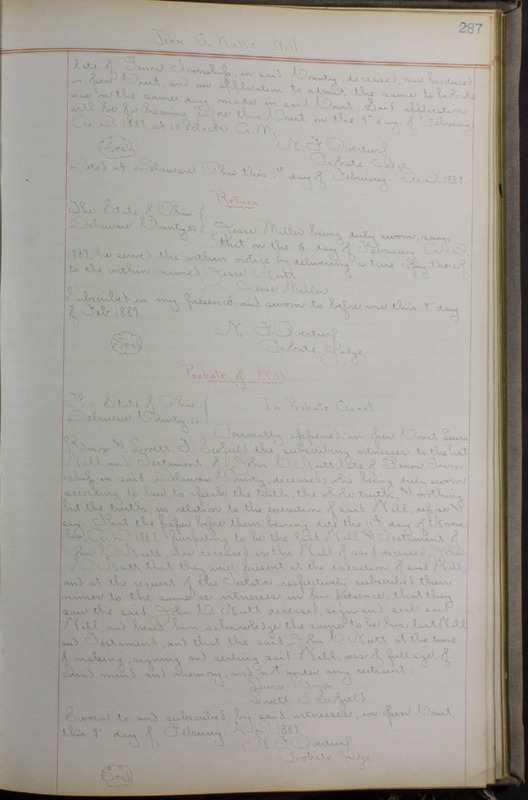 287
John C. Nutt's Will
late of Genoa Township, in said County, deceased, was produced
in open Court and an application to admit the same to probate
was on the same day made in said Court. Said application
will be for hearing before this Court on the 9" day of February
A.D. 1889, at 10 o'clock A.M.
N. F. Overturf
(Seal) Probate Judge
Dated at Delaware, Ohio, this 1st day of February A.D. 1889.
Return
The State of Ohio }
Delaware County ss } Jesse Miller being duly sworn, says
that on the 3 day of February A.D.
1889 he served the within notice by delivering a true copy thereof
to the within named Jesse Nutt
Jesse Miller
Subscribed in my presence and sworn to before me this 9" day
of Feb 1889.
N. F. Overturf
(Seal) Probate Judge
Probate of Will
The State of Ohio }
Delaware County ss } In Probate Court
Personally appeared, in open Court, Lewis
Knox & Lovett T. the subscribing witnesses to the last
Will and Testament of John C. Nutt late of Genoa Town-
ship in said Delaware County, deceased; who being duly sworn
according to law to speak the truth, the whole truth, & nothing
but the truth, in relation to the execution of said Will, depose &
say: That the paper before them bearing date the 11th day of Novem
ber A.D. 1887 purporting to be the last Will & Testament of
John C. Nutt now deceased is the Will of said deceased John
C. Nutt that they were present at the execution of said Will,
and at the request of the testator, respectively subscribed their
names to the same as witnesses, in his presence, that they
saw the said John C. Nutt deceased, sign and seal said
Will, and heard him acknowledge the same to be his last Will
and Testament, and that the said John C. Nutt at the time
of making, signing and sealing said Will, was of full age, of
sound mind and memory, and not under any restraint.
Lewis Knox
Lovett T.
Sworn to and subscribed by said witnesses, in open Court,
this 9" day of February A.D. 1889.
N. F. Overturf
(Seal) Probate Judge